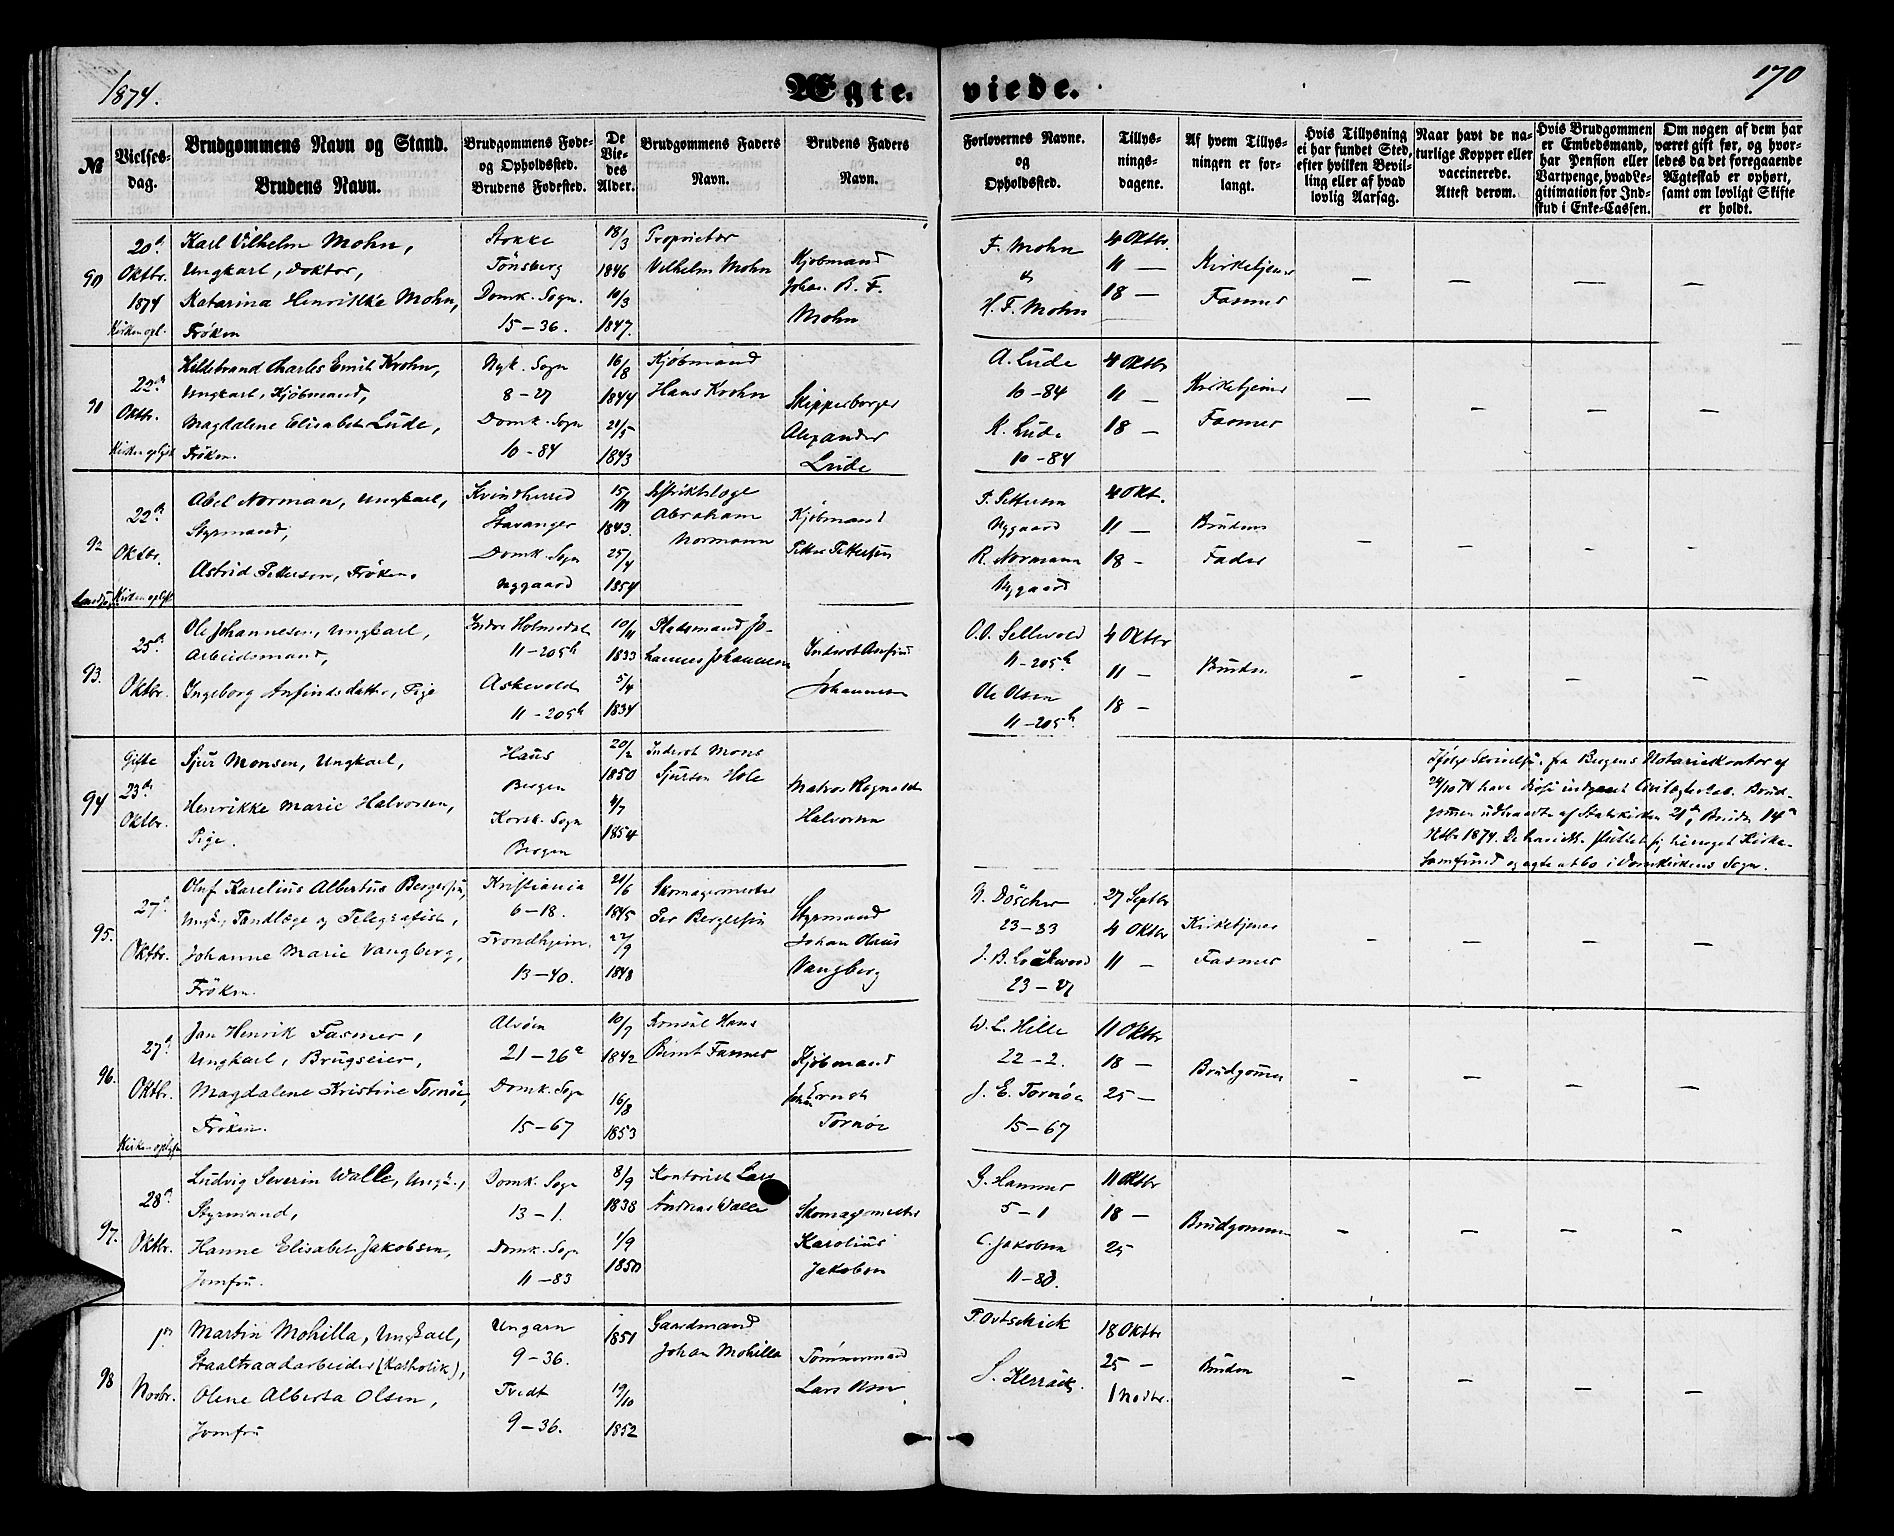 1874.
Ægte-
viede.
170
№
Vielses-
dag.
Brudgommens Navn og Stand.
Brudens Navn.
Brudgommens Føde-
og Opholdssted.
Brudens Fødested.
De
Vie-
des
Alder.
Brudgommens Faders
Navn.
Brudens Faders
Navn.
Forlovernes Navne.
og
Opholdssted.
Tillys-
nings-
dagene.
Af hvem Tillys-
ningen er for-
langt.
Hvis Tillysning
ei har fundet Sted,
efter hvilken Bevil-
ling eller af hvad
lovlig Aarsag.
Naar havt de na-
turlige Kopper eller
vaccinerede.
Attest derom.
Hvis Brudgommen
er Embedsmand,
har Pension eller
Vartpenge, hvad Le-
gitimation for Ind-
skud i Enke-Cassen.
Om nogen af dem har
været gift før, og hvor-
ledes da det foregaaende
Ægteskab er ophørt,
samt om lovligt Skifte
er holdt.
90
20de
Oktbr.
1874
Kirken opl.
Karl Vilhelm Mohn,
Ungkarl, Doktor,
Katarina Henrikke Mohn,
Frøken
Stokke
Tönsberg
Domk. Sogn.
15-36.
18/3
1846
10/3
1847.
Proprietær
Vilhelm Mohn
Kjøbmand
Johan B. F.
Mohn
F. Mohn
&
H. F. Mohn
4 Oktbr.
11 —
18 —
Kirketjener
Fasmer
91
22de
Oktbr.
Kirken oplyst
Hildebrand Charles Emil Krohn,
Ungkarl, Kjøbmand,
Magdalene Elisabet Lude,
Frøken.
Nyk. Sogn
8-27
Domk. Sogn
10-84
16/8
1844
21/5
1843
Kjøbmand
Hans Krohn
Skipperborger
Alexander
Lude
A. Lude
10-84
K. Lude
10-84
4 Oktbr
11 —
18 —
Kirketjener
Fasmer
92
22de
Oktbr.
Kirken oplyst
Abel Norman, Ungkarl,
Styrmand,
Astrid Pettersen, Frøken.
Kvindherred
Stavanger
Domk. Sogn
Nygaard
15/11
1843.
25/4
1854
Distriktslæge
Abraham
Normann
Kjøbmand
Petter Pettersen
P. Pettersen
Nygaard
R. Normann
Nygaard
4 Okt.
11 —
18 -
Brudens
Fader
93.
25de
Oktbr.
Ole Johannesen, Ungkarl,
Arbeidsmand,
Ingeborg Anfindsdatter, Pige
Indre Holmedal
11-205h
Askevold
11-205h
10/11
1833
5/4
1834
Pladsmand Jo-
hannes Johannesen
Inderst Anfind
Johannesen
O. O. Sellevold
11-205h.
Ole Olsen
11-205h.
4 Oktbr
11 -
18 -
Bruden
94
Gifte
23de
Oktbr.
Sjur Monsen, Ungkarl,
Henrikke Marie Halvorsen,
Pige.
Haus
Bergen
Korsk. Sogn
Bergen
20/2
1850
4/7
1854
Inderst Mons
Sjursen Hole
Matros Regnald
Halvorsen
Ifølge Skrivelse fra Bergens Notariekontor af
24/10 74 have disse indgaaet Civilægteskab. Brud-
gommen udtraadte af Statskirken 21de, Bruden 14de
Oktbr 1874. De have ikke sluttet sig til noget Kirke-
samfund og agte at bo i Domkirkens Sogn.
95.
27de
Oktbr.
Oluf Karelius Albertus Bergersen,
Ungk., Tandlæge og Telegrafist,
Johanne Marie Vangberg,
Frøken.
Kristiania
6-18.
Trondhjem.
13-40.
21/6
1845
22/9
1848
Skomagermester
Per Bergersen
Styrmand
Johan Olaus
Vangberg
N. Döscher
23-83
J. B. Lockwood
23-27
27 Septbr
4 Oktbr
11 —
Kirketjener
Fasmer
96.
27de
Oktbr.
Kirken oplyst
Jan Henrik Fasmer,
Ungkarl, Brugseier,
Magdalene Kristine Tornöe,
Frøken.
Alvøen
21-26a
Domk. Sogn
15-67
10/7
1842
16/8
1853
Konsul Hans
Berent Fasmer
Kjøbmand
Johan Ernst
Tornöe
W. L. Hille
22-2.
J. E. Tornöe
15-67
11 Oktbr
18 —
25 —
Brudgommen
97.
28de
Oktbr.
Ludvig Severin Walle, Ungk.,
Styrmand,
Hanne Elisabet Jakobsen,
Jomfru.
Domk. Sogn
13-1.
Domk. Sogn
11-83
8/9
1838
1/9
1850
Kontorist Lars
Andreas Walle
Skomagermester
Karolius
Jakobsen
G. Hammer
5-1
C. Jakobsen
11-83.
11 Oktbr
18 —
25
Brudgommen
98
1en
Novbr.
Martin Mohilla, Ungkarl,
Staaltraadarbeider (Katholik),
Olene Alberta Olsen,
Jomfru
Ungarn
9-36.
Tvedt
9-36.
1851
19/10
1852
Gaardmand
Johan Mohilla
Tømmermand
Lars Olsen
P. Ovtschick
18 Oktbr
25 —
1 Novbr.
Bruden